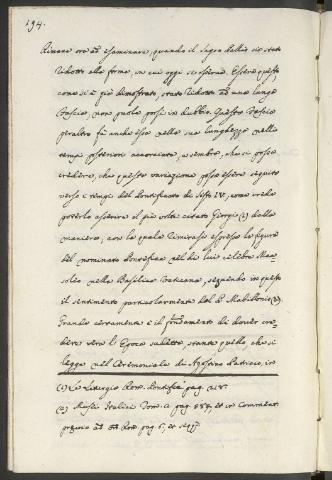 194.
Rimane ora ad esaminare, quando il sagro Pallio sia stato
ridotto alla forma, in cui oggi si osserva. Essere questo
come si è più dimostrato, stato ridotto ad una lunga
fascia, non puole porsi in dubbio. Questa fascia
peraltro fù anch'essa nella sua lunghezza nelli
tempi posteriori accorciata, e sembra, che si possa
credere, che questa variazione possa essere seguita
verso i tempi del Pontificato di Sisto IV, come crede
poterlo asserire il più volte citato Giorgi (1) dalla
maniera, con la quale rimirasi espressa la figura
del nominato Pontefice nel di lui celebre Mau-
soleo nella Basilica Vaticana, seguendo in questo
il sentimento particolarmente del P. Mabillonio (2).
Grande certamente è il fondamento di dover cre-
dere vera l'Epoca suddetta, stante quello che si
legge nel Ceremoniale di Agostino Patricio, in
(1) La Liturgia Rom. Pontific. pag. 218.
(2) Musei Italici Tom. 2. pag. 889, et in Comment.
previo ad Ord. Rom. pag. 6, et seqq.